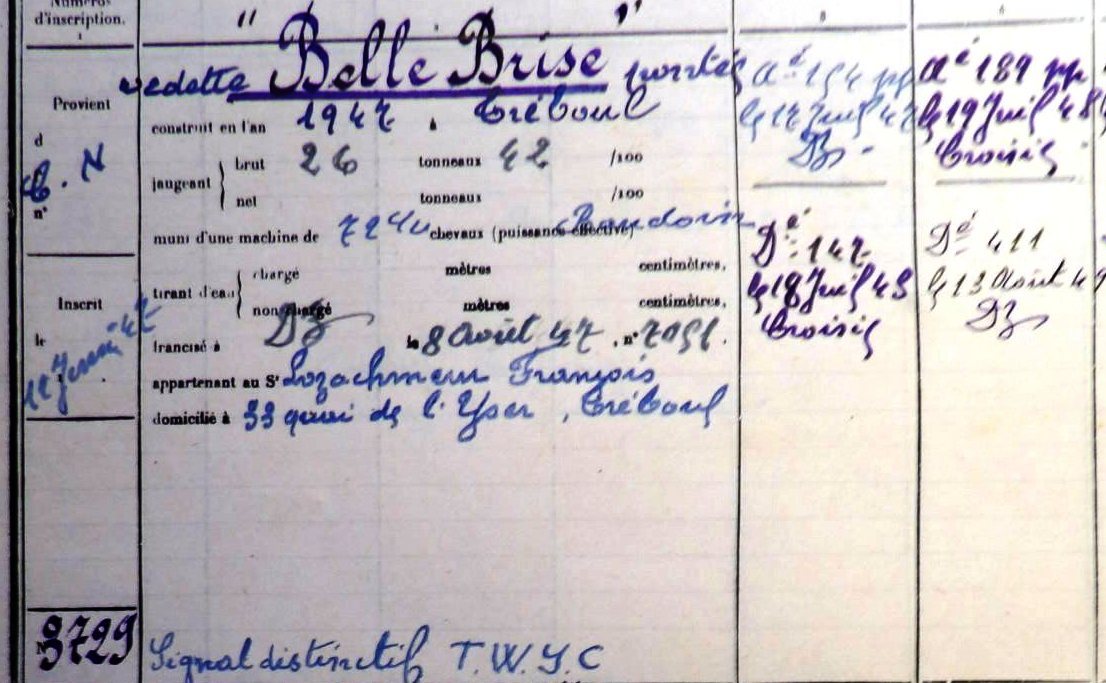 Numéros
d'inscription.
1
"Belle Brise"
vedette pontée
Provient
d
C. N
n°
construit en l'an 1947, Tréboul
jaugeant
brut 26 tonneaux 42 /100
net tonneaux /100
muni d'une machine de 72 chevaux (puissance effective) Baudouin
tirant d'eau
chargé mètres centimètres,
non chargé mètres centimètres,
francisé à DZ le 8 Août 47, n° 7051.
appartenant au Sr Lozachmeur François
domicilié à 33 quai de l'Yser, Tréboul
Inscrit
le
12
N° 3729
Signal distinctif T.W.Y.C
Aé 154 pp
le 17 Juil 47
DZ
Dé 147
le 18 Juil 48
Croisic
6
Aé 189 pp
le 19 Juil 48
Croisic
Dé 411
le 13 Août 49
DZ